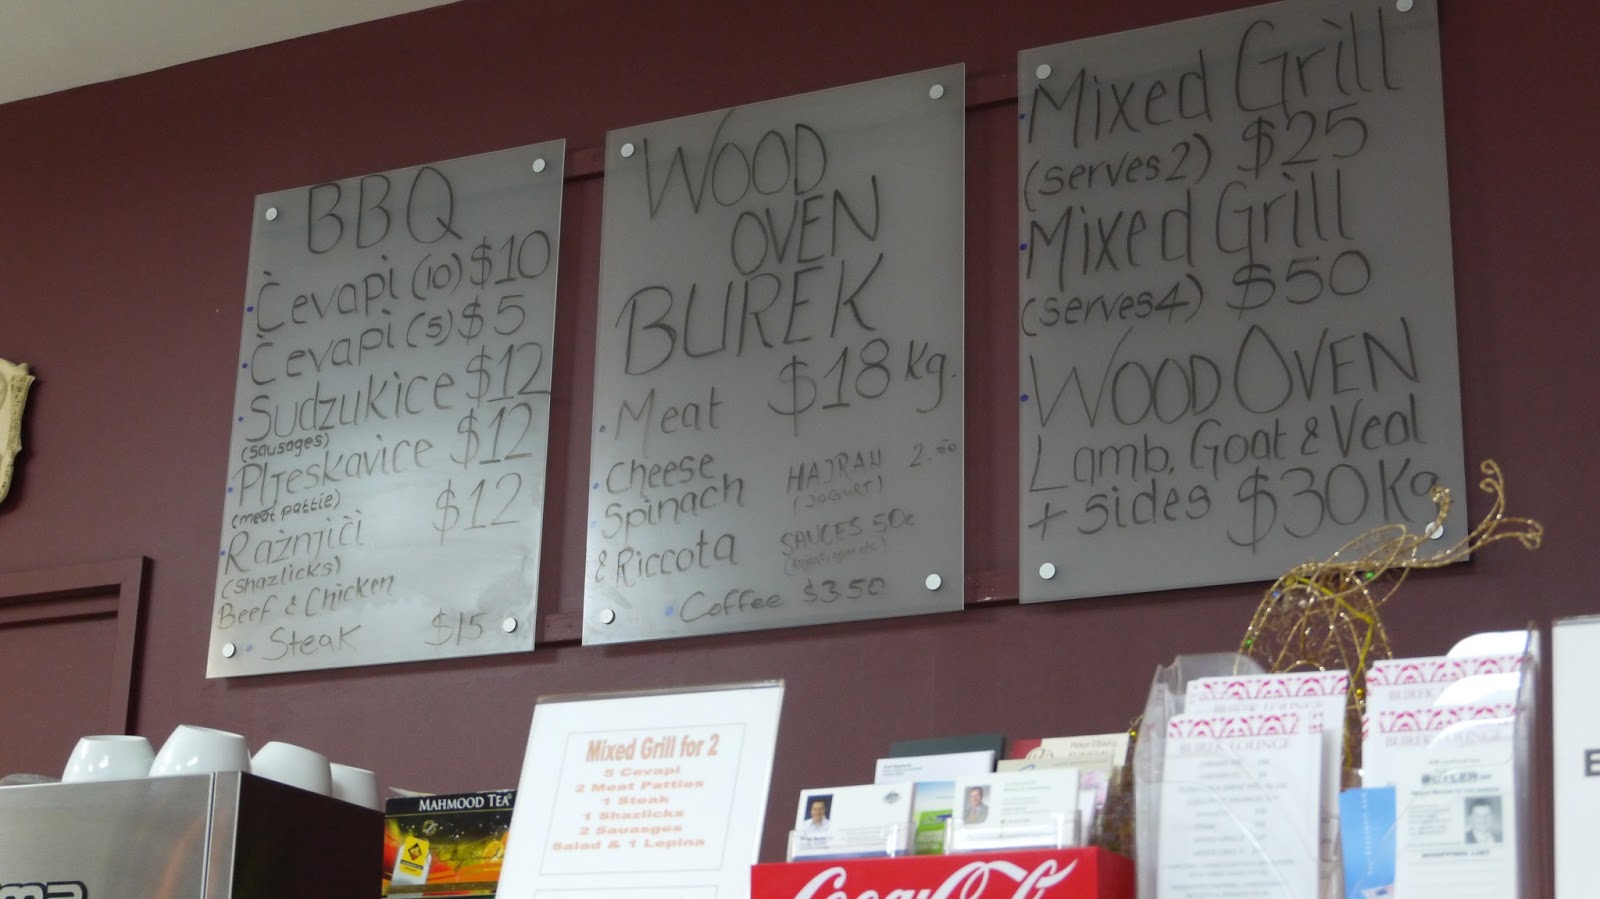 BBQ
Čevapi (10) $10
Čevapi (5) $5
Sudzukice $12
(sausages)
Pljeskavice $12
(meat pattie)
Ražnjići $12
(Shazlicks)
Beef & Chicken
Steak $15
WOOD
OVEN
BUREK
Meat $18 kg.
Cheese
Spinach
& Riccota
HAJRAN 2.50
(JOGURT)
SAUCES 50c
Coffee $3.50
Mixed Grill
(serves 2) $25
Mixed Grill
(serves 4) $50
WOOD OVEN
Lamb, Goat & Veal
+ sides $30 Kg
Mixed Grill for 2
5 Cevapi
2 Meat Patties
1 Steak
1 Shazlicks
2 Sauasges
Salad & 1 Lepina
MAHMOOD TEA
Coca-Cola
BUREK LOUNGE
BUREK LOUNGE
BUTLER